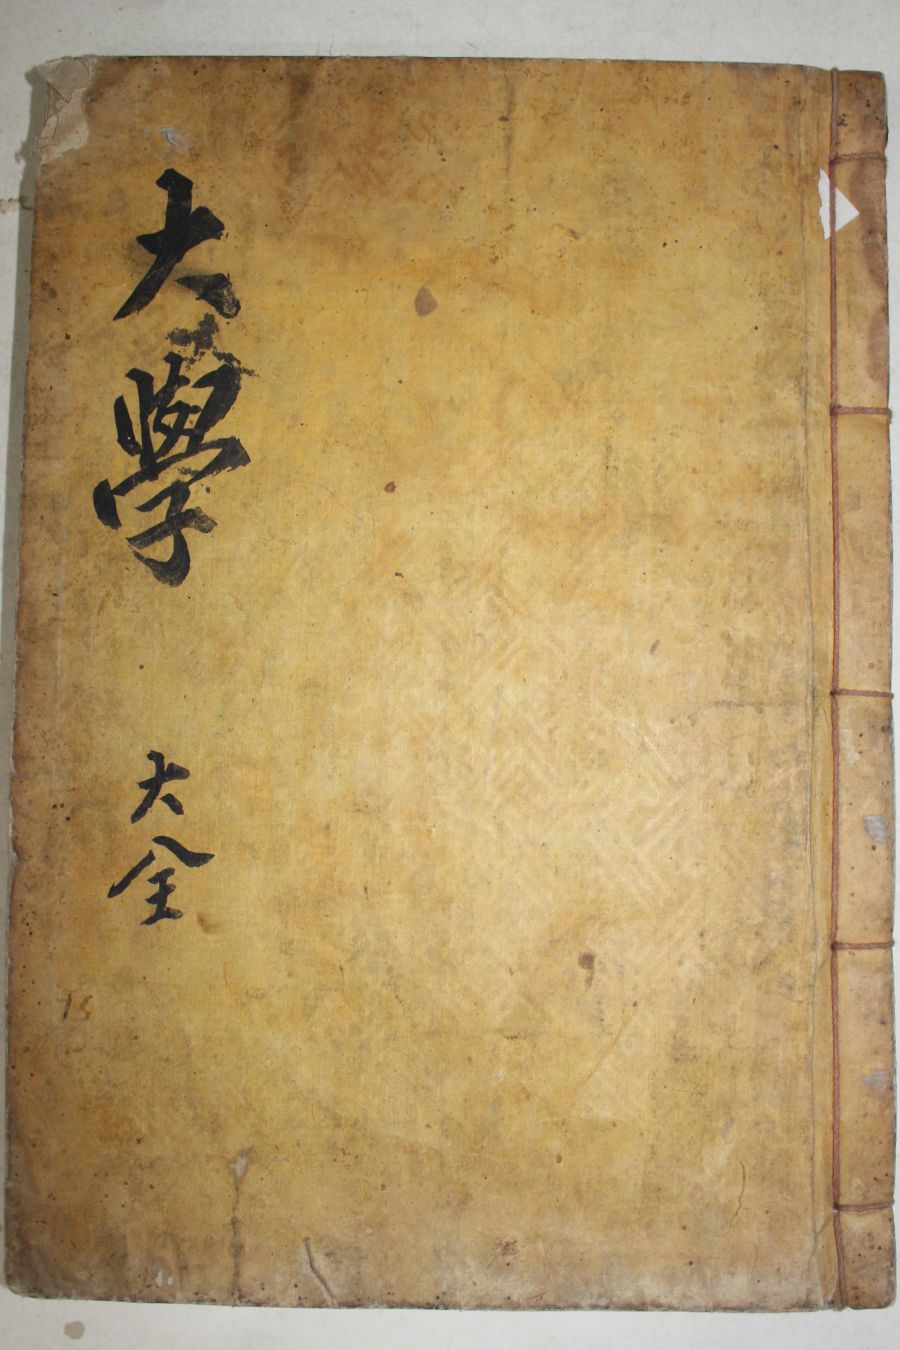 大學
大全